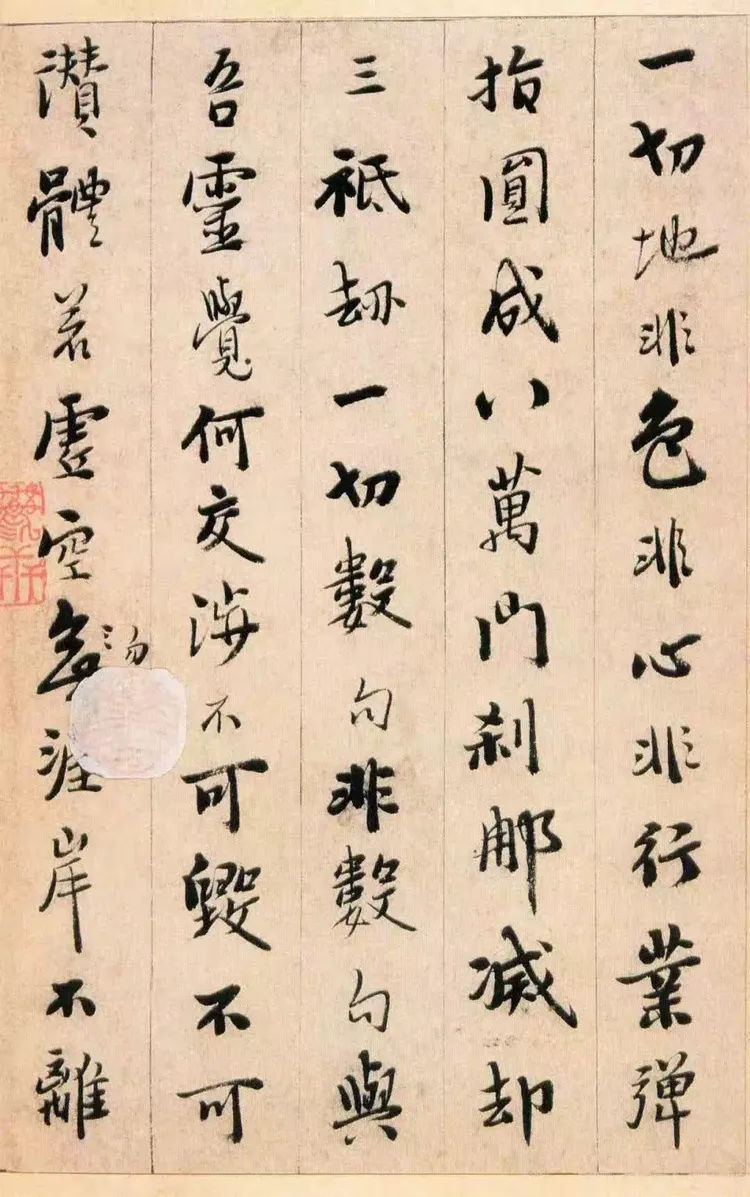 一切地非色非心非行業彈
指圓成八萬門刹那滅却
三祇劫一切數句非數句與
吾靈覺何交涉不可毀不可
讃體若虛空無涯岸不離
勿